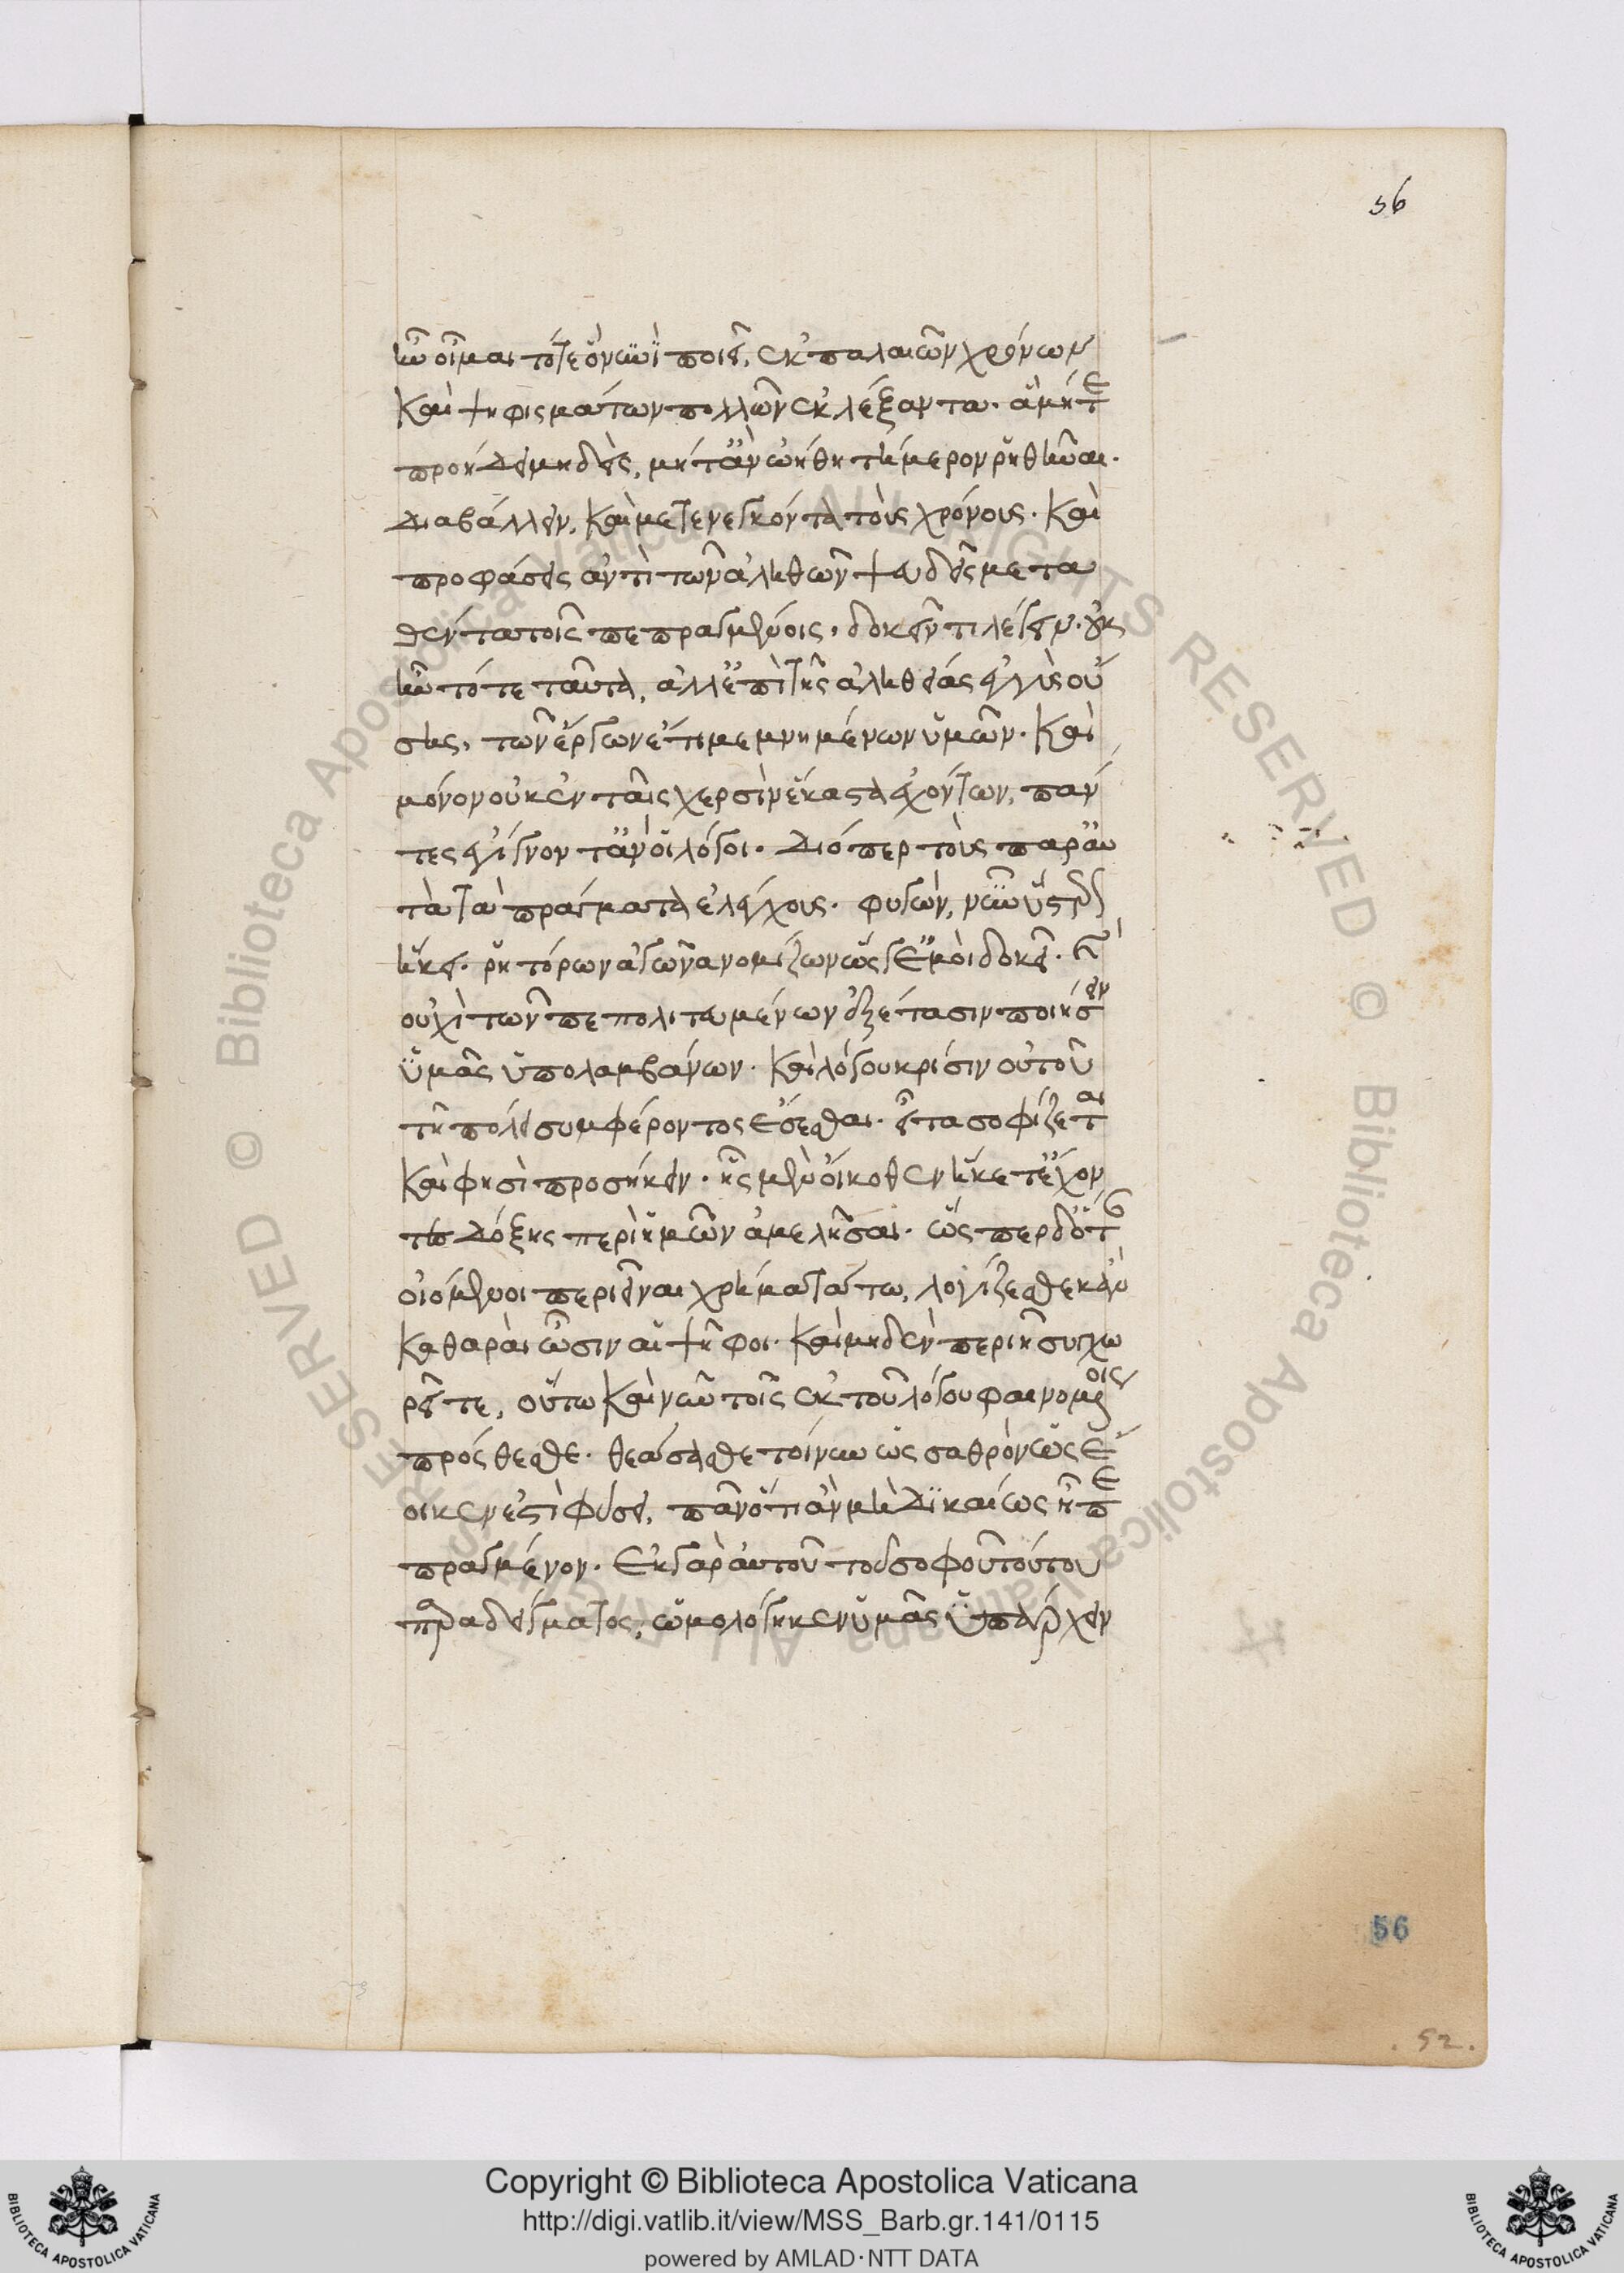 56
ἦν οἶμαι τότε ὃ νυνὶ ποιεῖ, ἐκ παλαιῶν χρόνων
καὶ ψηφισμάτων πολλῶν ἐκλέξαντα. ἃ μήτε
προήδει μηδεὶς, μήτ' ἂν ὠήθη τήμερον ῥηθῆναι.
διαβάλλειν, καὶ μετενεγκόντα τοὺς χρόνους. καὶ
προφάσεις ἀντὶ τῶν ἀληθῶν ψευδεῖς μετα
θέντα τοῖς πεπραγμένοις, δοκεῖν τι λέγειν. οὐκ
ἦν τότε ταῦτα, ἀλλ' ἐπὶ τῆς ἀληθείας ἐγγὺς οὔ
σης, τῶν ἔργων ἔτι μεμνημένων ὑμῶν. καὶ
μόνον οὐκ ἐν ταῖς χερσὶν ἕκαστα ἐχόντων, πάν
τες ἐγίγνοντ' ἂν οἱ λόγοι. διόπερ τοὺς παρ' αὐ
τὰ τὰ πράγματα ἐλέγχους. φυγὼν, νῦν ὕστερον
ἥκει. ῥητόρων ἀγῶνα νομίζων ὥς γ' ἐμοὶ δοκεῖ. καὶ
οὐχὶ τῶν πεπολιτευμένων ἐξέτασιν ποιήσειν
ὑμᾶς ὑπολαμβάνων. καὶ λόγου κρίσιν οὐ τοῦ
τῇ πόλει συμφέροντος ἔσεσθαι. εἶτα σοφίζεται
καὶ φησὶ προσήκειν. ἧς μὲν οἴκοθεν ἥκετ' ἔχον
τες δόξης περὶ ἡμῶν ἀμελῆσαι. ὥσπερ δ' ὅταν
οἰόμενοι περιεῖναι χρήματά τῳ, λογίζεσθε κἂν
καθαραὶ ὦσιν αἱ ψῆφοι. καὶ μηδὲν περιῇ συγχω
ρεῖτε, οὕτω καὶ νῦν τοῖς ἐκ τοῦ λόγου φαινομένοις
πρόσθεσθε. θεάσασθε τοίνυν ὡς σαθρὸν ὡς ἔ
οικεν ἐστὶ φύσει, πᾶν ὅτι ἂν μὴ δικαίως ᾖ πε
πραγμένον. ἐκ γὰρ αὐτοῦ τοῦ σοφοῦ τούτου
παραδείγματος, ὡμολόγηκεν ὑμᾶς ὑπάρχειν
56
. 52 .
Copyright © Biblioteca Apostolica Vaticana
http://digi.vatlib.it/view/MSS_Barb.gr.141/0115
powered by AMLAD·NTT DATA